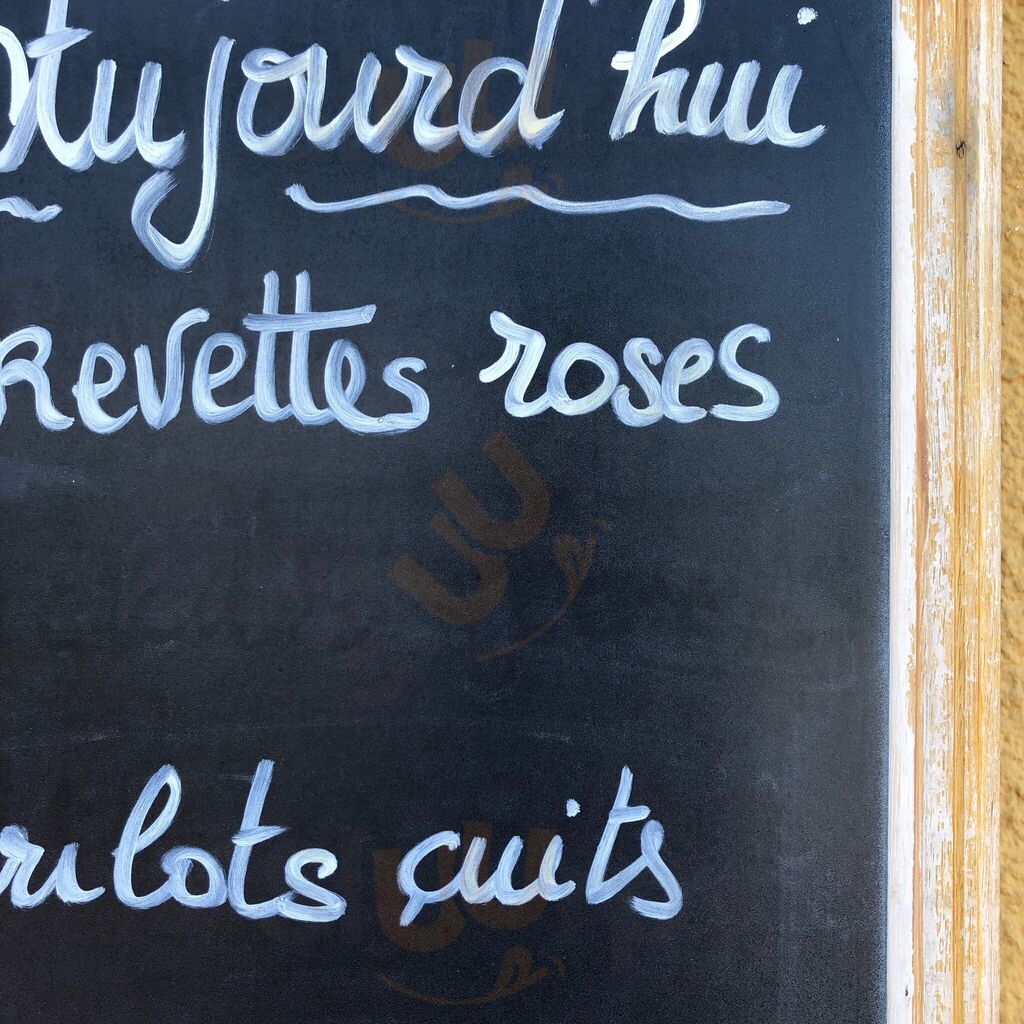 Aujourd'hui
revettes roses
ulots cuits